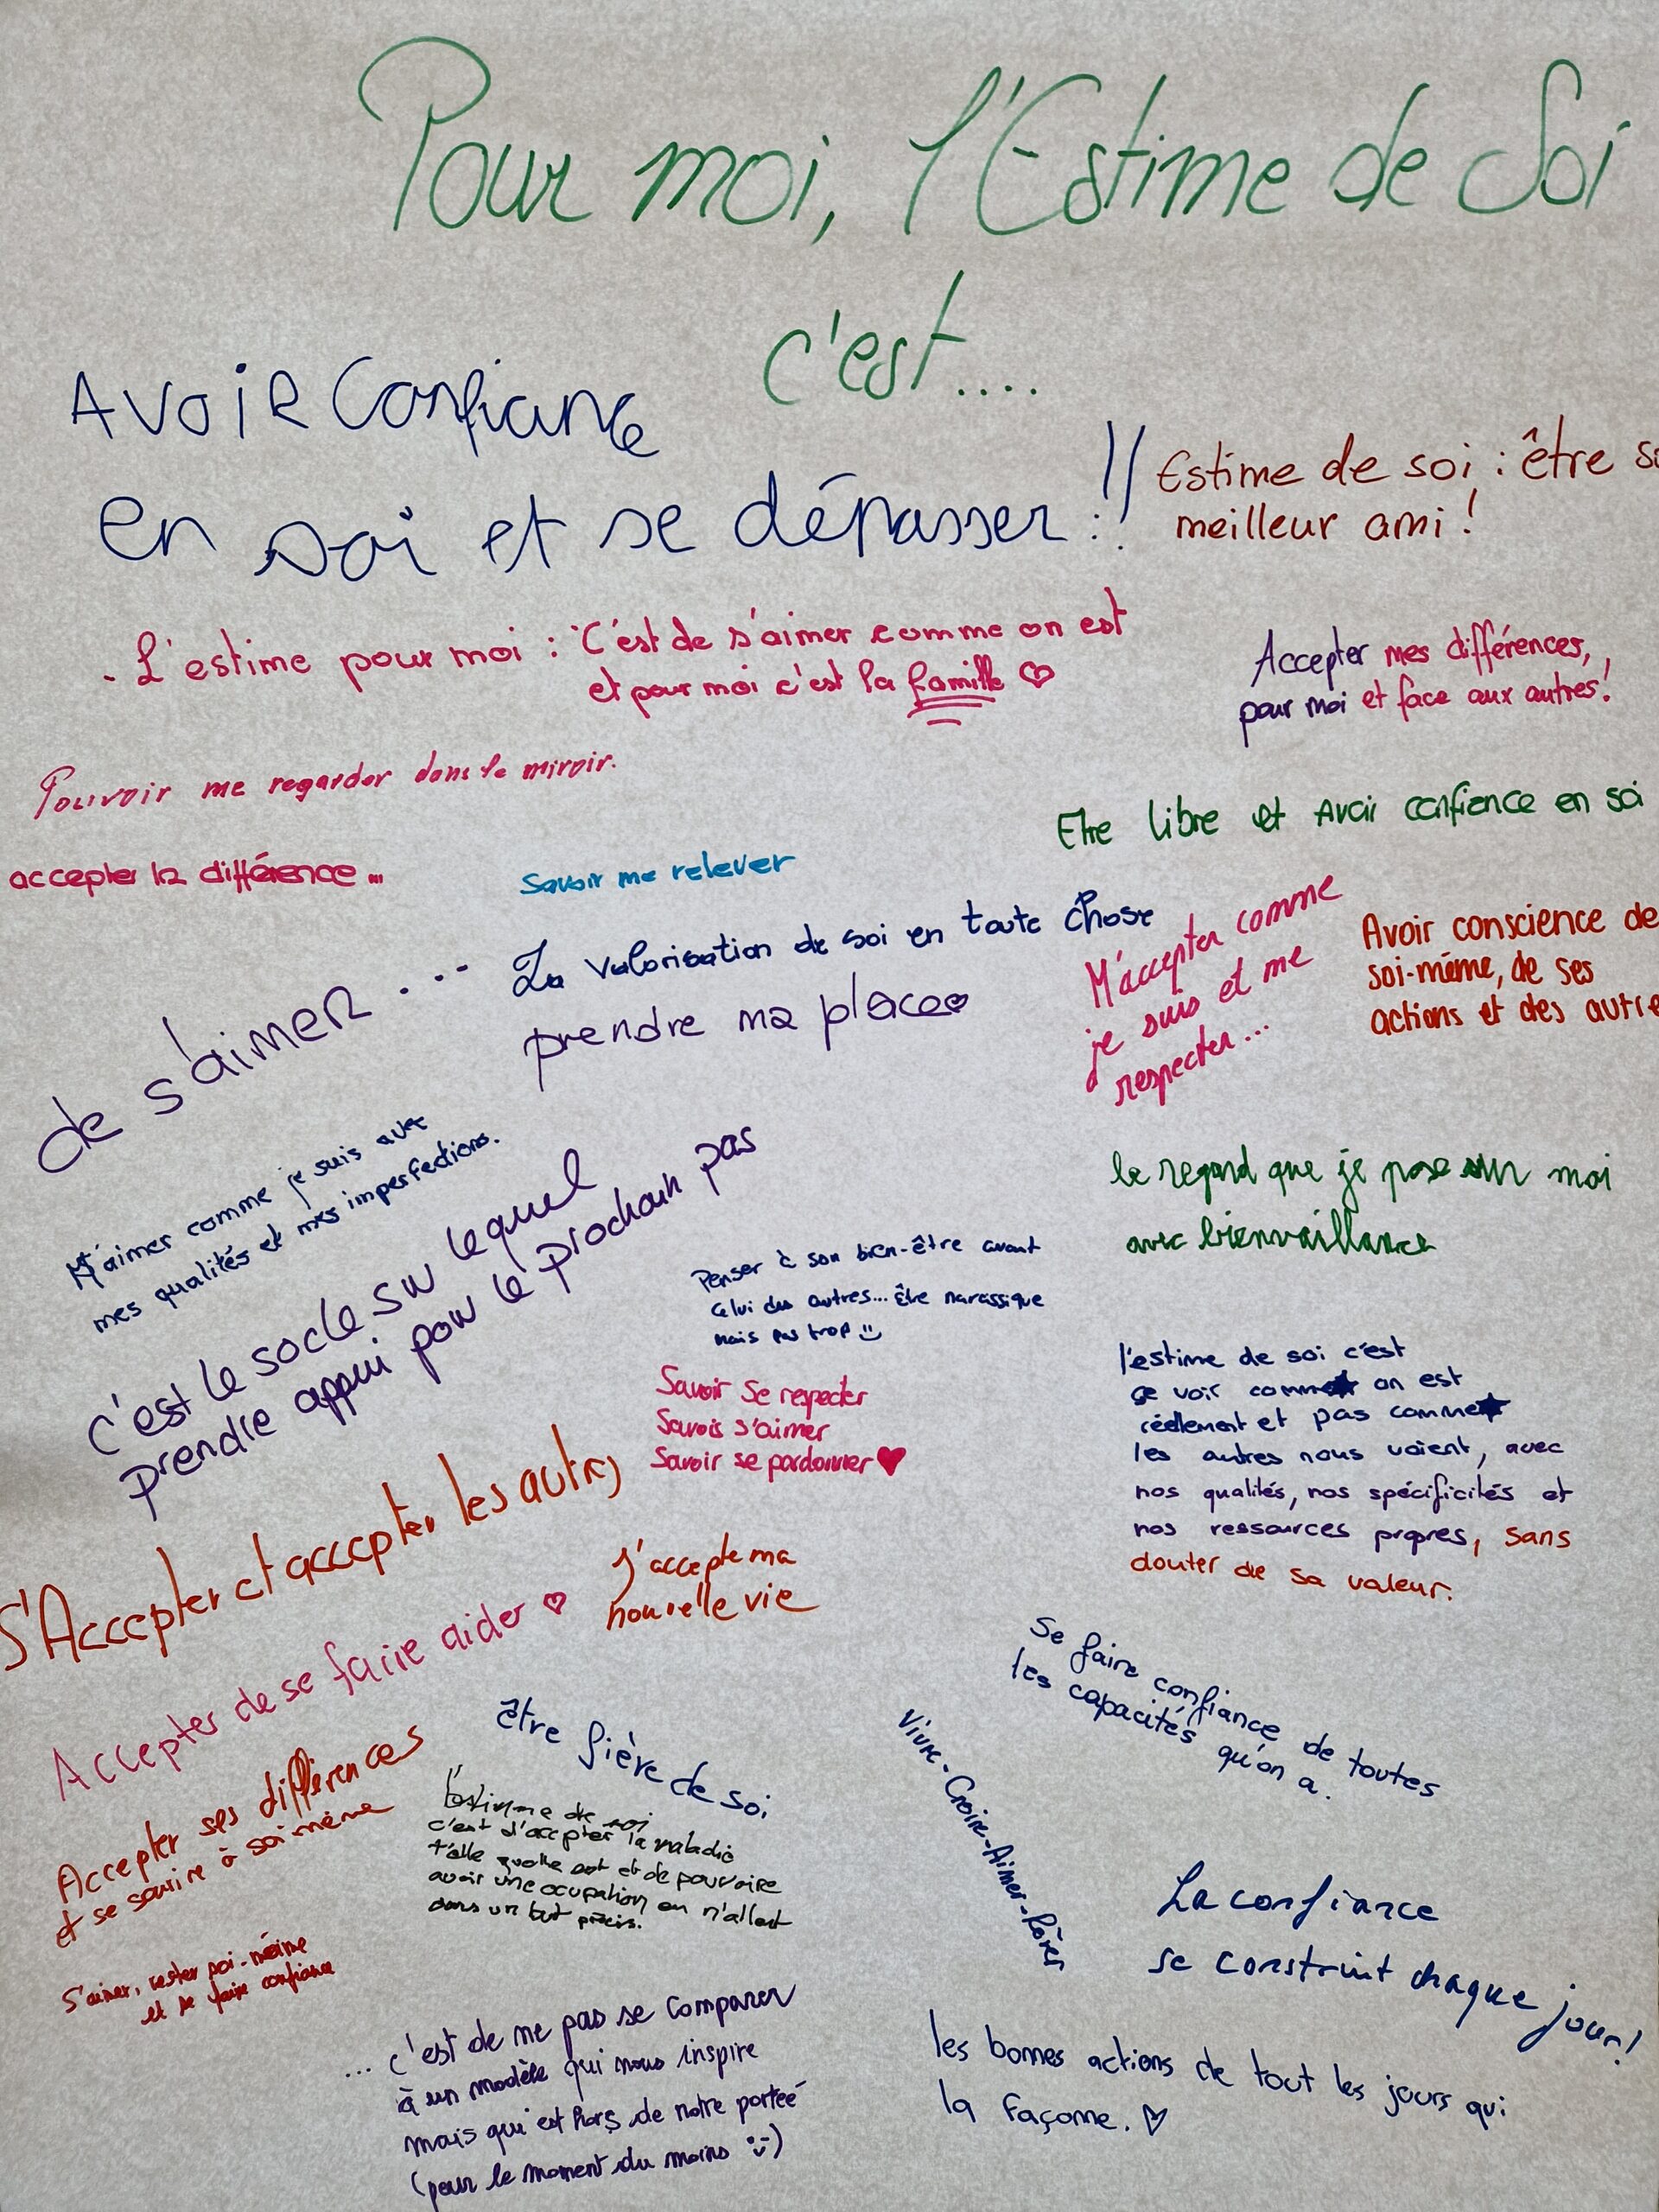 Pour moi, l'Estime de Soi
c'est....
AVOIR Confiance
en soi et se dépasser !!
Estime de soi : être so
meilleur ami !
- L'estime pour moi : C'est de s'aimer comme on est
et pour moi c'est la famille ♡
Accepter mes différences,
pour moi et face aux autres !
Pouvoir me regarder dans le miroir.
Etre libre et Avoir confience en soi
accepter la différence...
Savoir me relever
La valorisation de soi en toute chose
prendre ma place♡
M'accepter comme
je suis et me
respecter...
Avoir conscience de
soi-même, de ses
actions et des autre
de s'aimer ...
M'aimer comme je suis avec
mes qualités et mes imperfections.
c'est le socle sur lequel
prendre appui pour le prochain pas
le regard que je pose sur moi
avec bienvaillance
Penser à son bien-être avant
celui des autres... Être narcissique
mais pas trop
Savoir se respecter
Savoir s'aimer
Savoir se pardonner ♥
l'estime de soi c'est
se voir comme on est
réellement et pas comme
les autres nous voient, avec
nos qualités, nos spécificités et
nos ressources propres, sans
douter de sa valeur.
S'Accepter et accepter les autres
J'accepte ma
nouvelle vie
Accepter de se faire aider ♡
Se faire confiance de toutes
les capacités qu'on a.
être fière de soi
L'estime de soi
c'est d'accpter la maladie
t'elle quelle est et de pouvoire
avoir une ocupation en n'allant
dans un but précis.
Vivre-Croire-Aimer-Rêver
Accepter ses différences
et se sourire à soi même
S'aimer, rester soi-même
et se faire confiance
La confiance
se construit chaque jour!
... c'est de ne pas se comparer
à un modèle qui nous inspire
mais qui est hors de notre portée
(pour le moment du moins :-)
les bonnes actions de tout les jours qui
la façonne. ♡